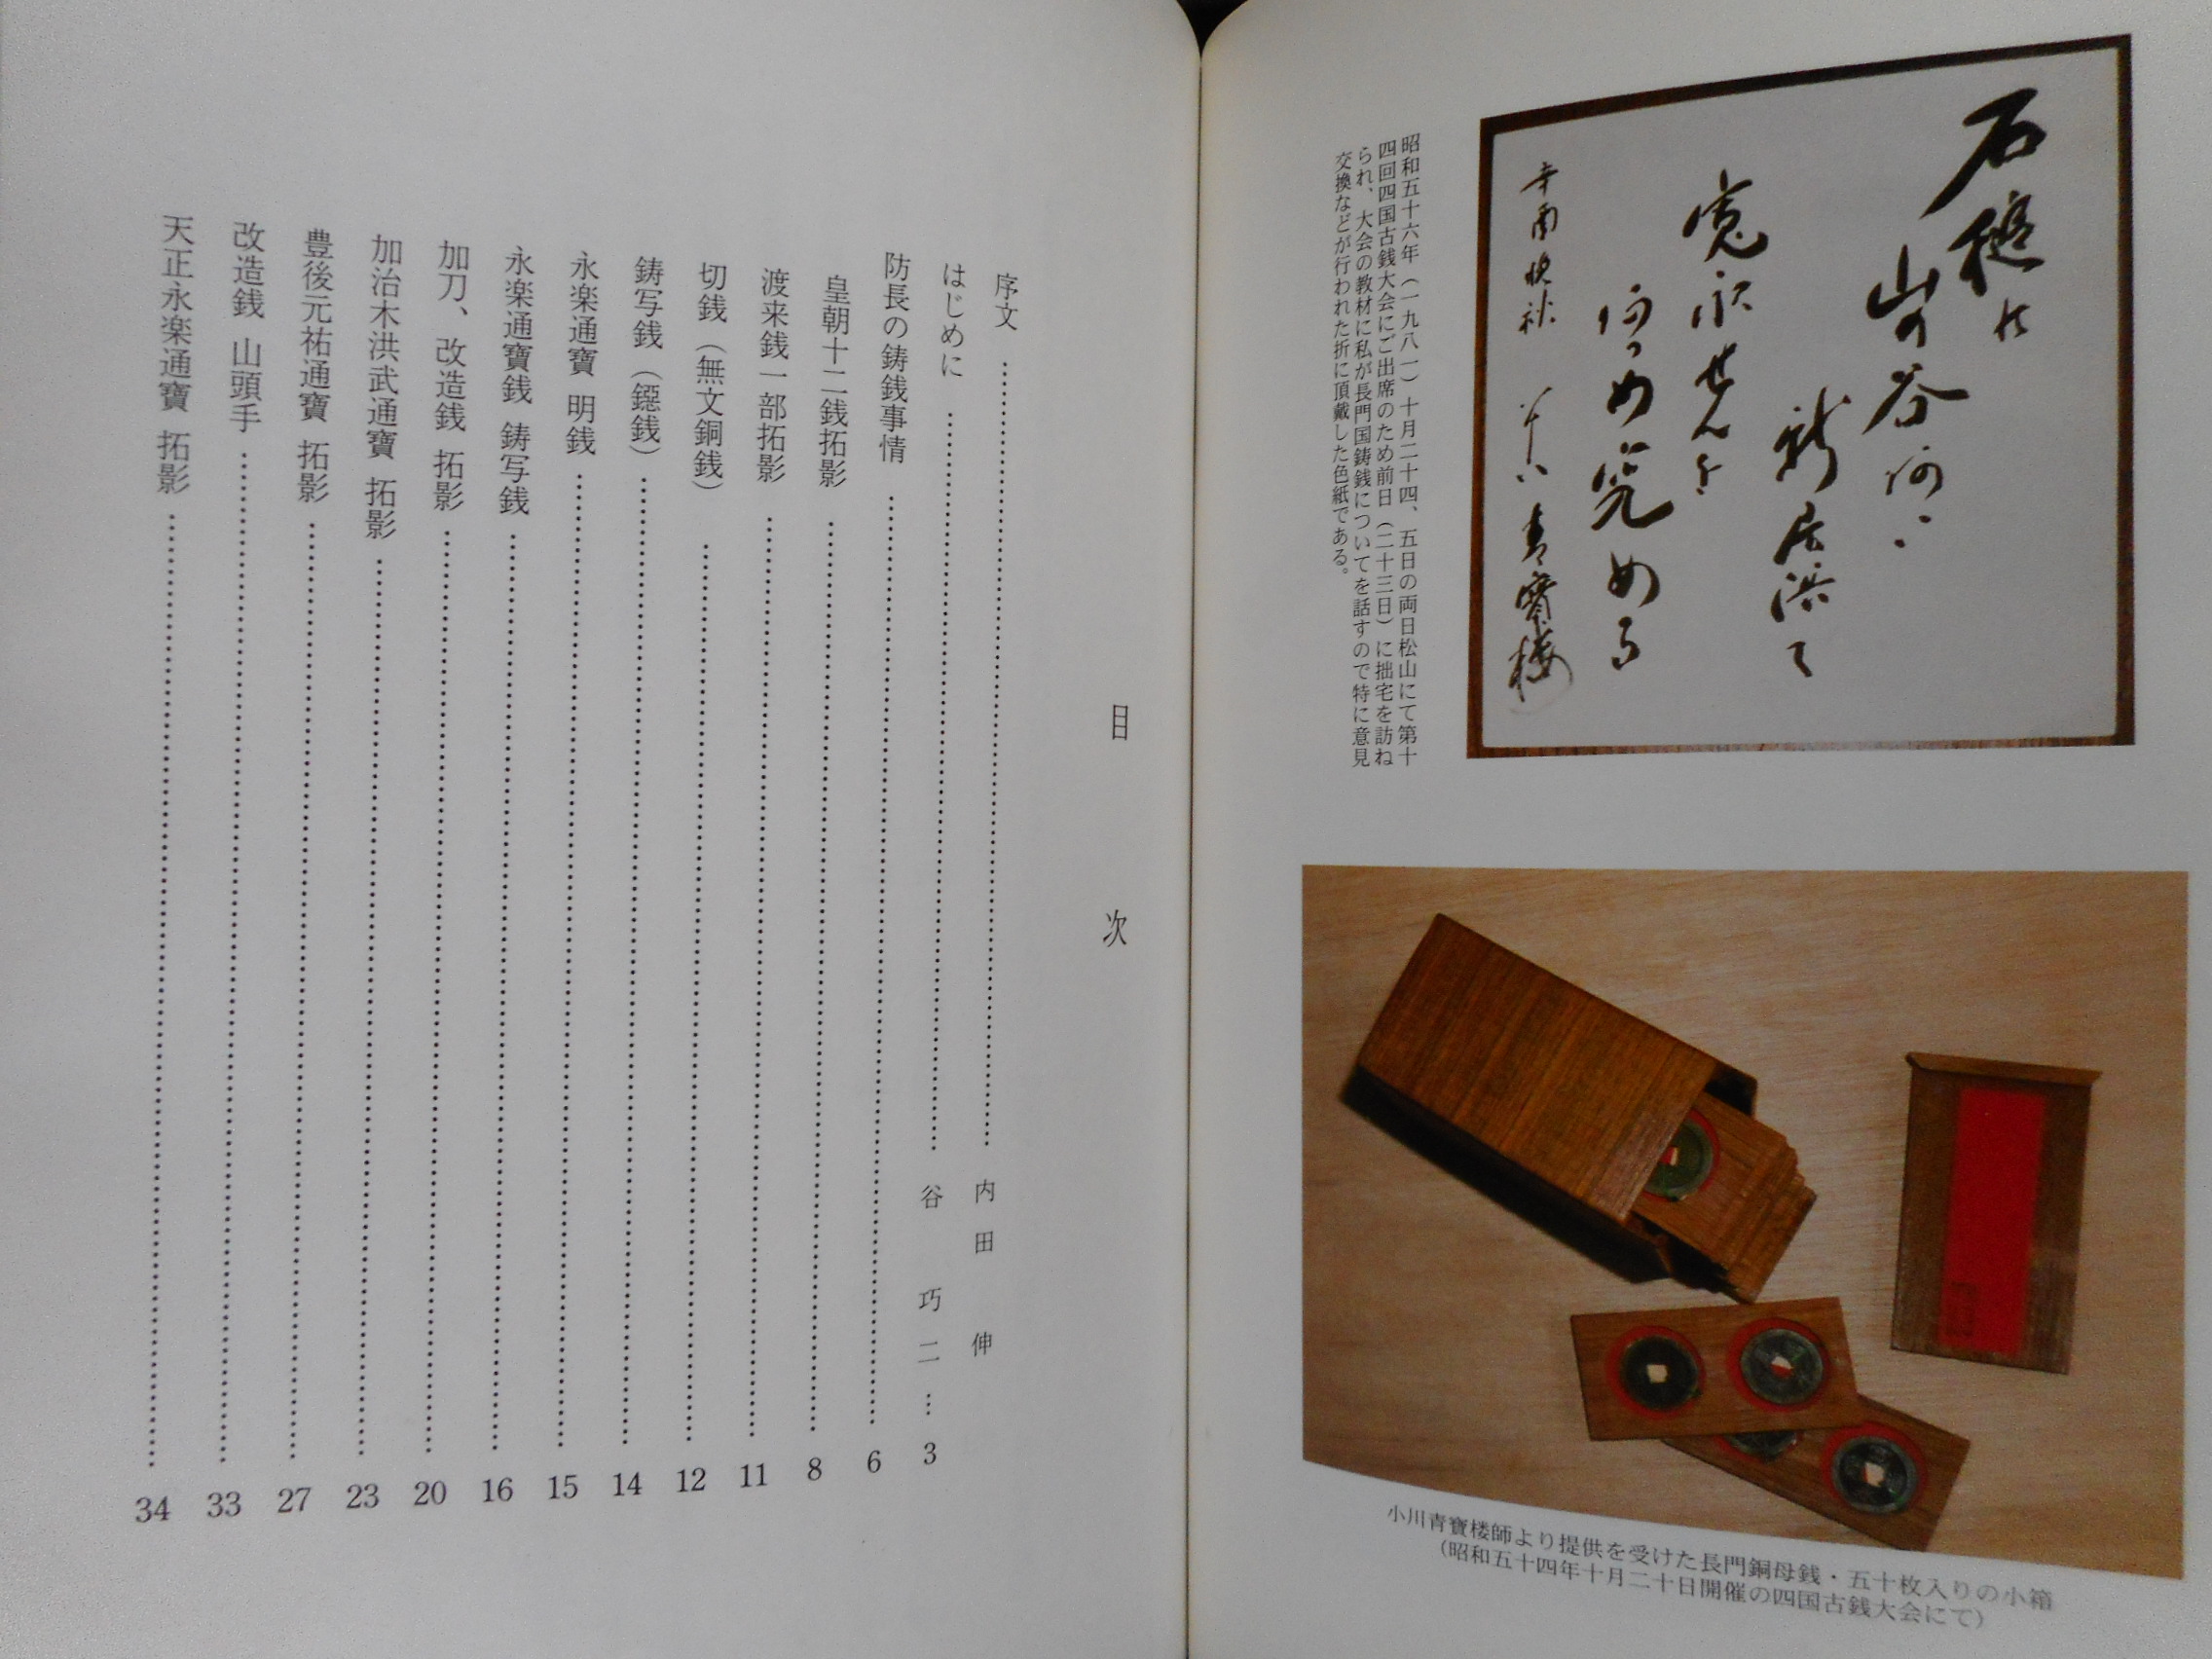 昭和五十六年（一九八一）十月二十四、五日の両日松山にて第十
四回四国古銭大会にご出席のため前日（二十三日）に拙宅を訪ね
られ、大会の教材に私が長門国鋳銭についてを話すので特に意見
交換などが行われた折に頂戴した色紙である。
小川青寶楼師より提供を受けた長門銅母銭・五十枚入りの小箱
（昭和五十四年十月二十日開催の四国古銭大会にて）
目次
序文 …… 内田 伸
はじめに …… 谷 巧二 … 3
防長の鋳銭事情 …… 6
皇朝十二銭拓影 …… 8
渡来銭一部拓影 …… 11
切銭（無文銅銭） …… 12
鋳写銭（鐚銭） …… 14
永楽通寶 明銭 …… 15
永楽通寶銭 鋳写銭 …… 16
加刀、改造銭 拓影 …… 20
加治木洪武通寶 拓影 …… 23
豊後元祐通寶 拓影 …… 27
改造銭 山頭手 …… 33
天正永楽通寶 拓影 …… 34